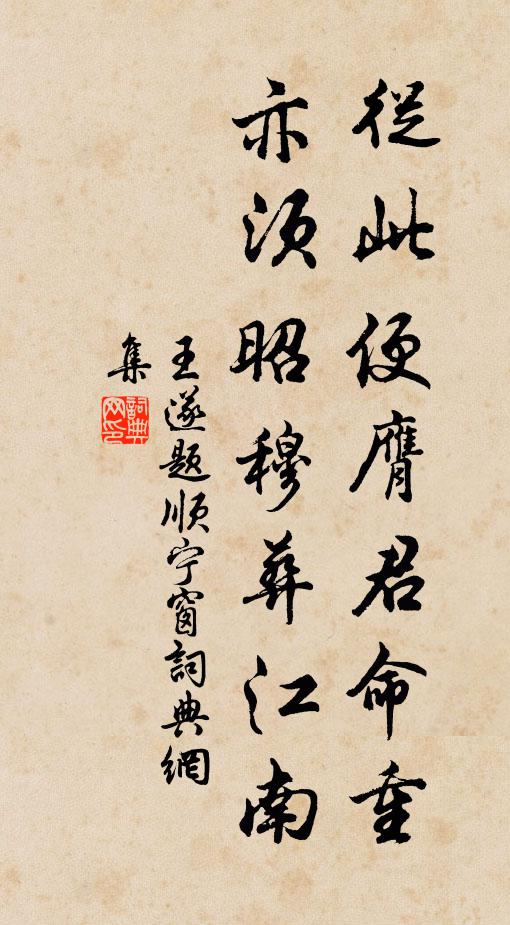 從此便膺君命重
亦須昭穆葬江南
王遂題順宁窗詞典網
集
詞典網印